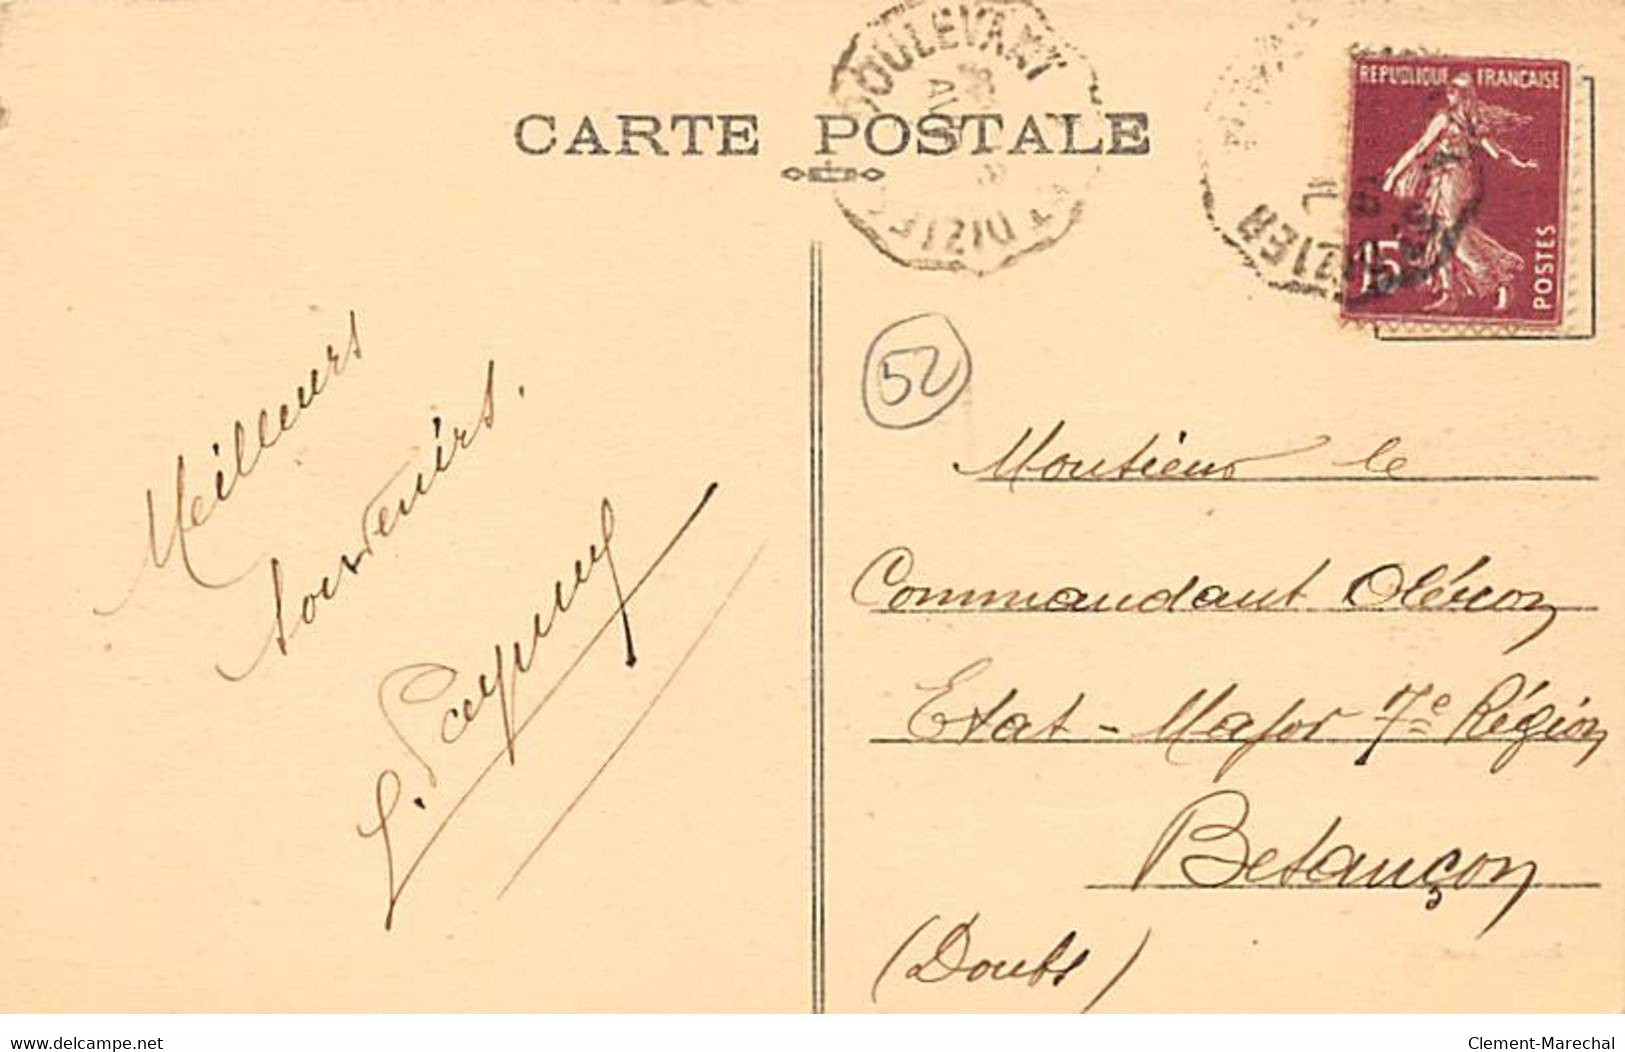 DOULEVANT
CARTE POSTALE
REPUBLIQUE FRANÇAISE
15
POSTES
DIZIER
52
Meilleurs
souvenirs.
Monsieur le
Commandant Oléron
Etat-Major 7e Région
Besançon
(Doubs)
www.delcampe.net
Clement-Marechal